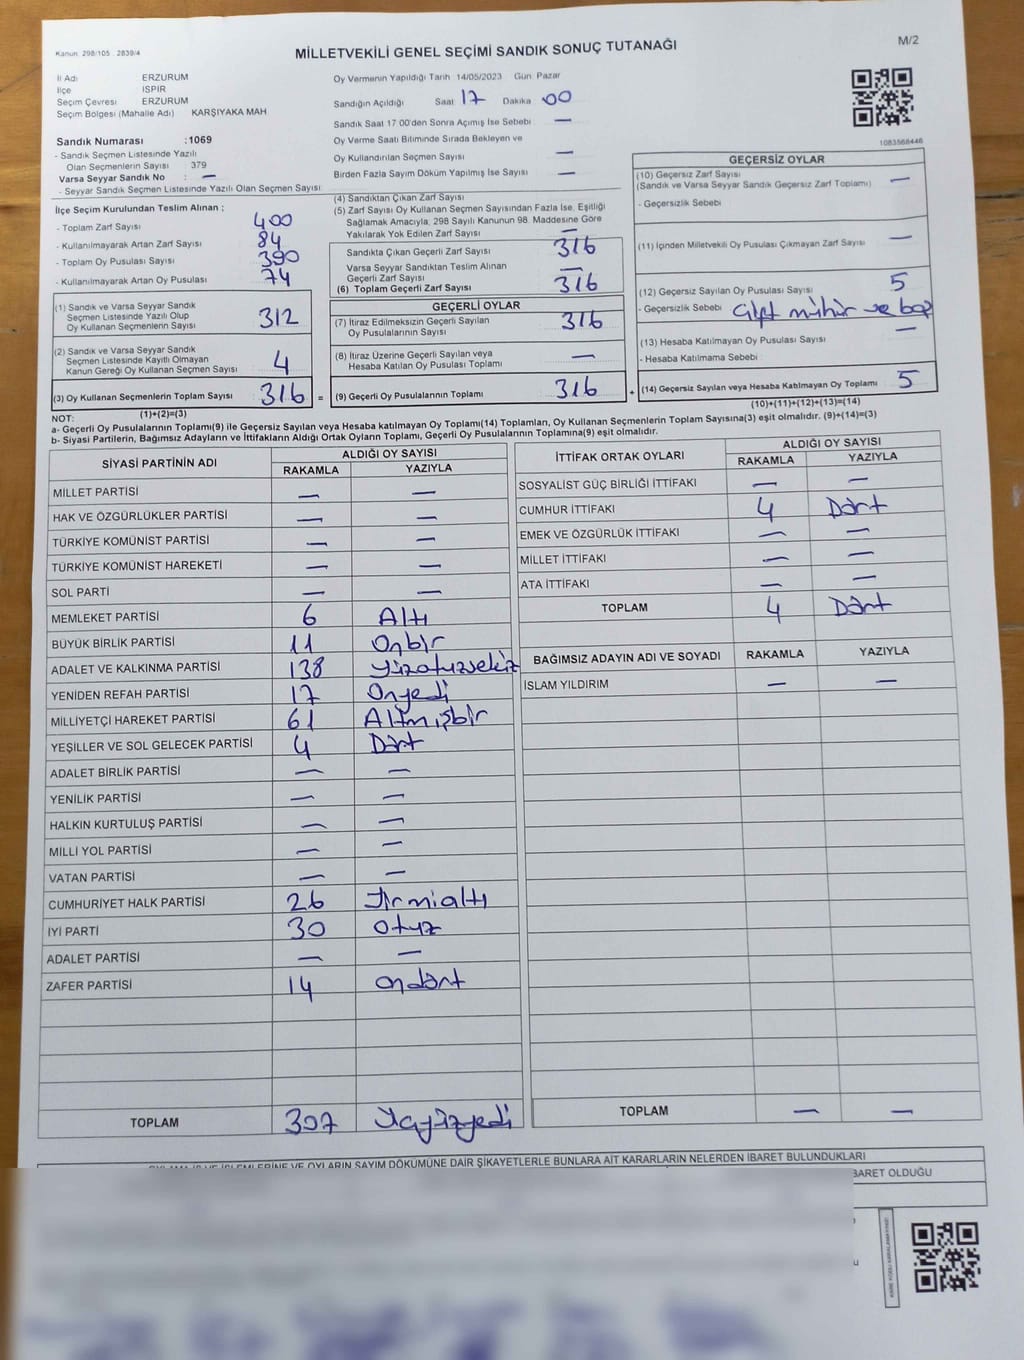 Kanun 298/105 2839/4
MİLLETVEKİLİ GENEL SEÇİMİ SANDIK SONUÇ TUTANAĞI
M/2
İl Adı ERZURUM
İlçe İSPİR
Seçim Çevresi ERZURUM
Seçim Bölgesi (Mahalle Adı) KARŞIYAKA MAH
Sandık Numarası :1069
- Sandık Seçmen Listesinde Yazılı
Olan Seçmenlerin Sayısı 379
Varsa Seyyar Sandık No —
- Seyyar Sandık Seçmen Listesinde Yazılı Olan Seçmen Sayısı
Oy Vermenin Yapıldığı Tarih 14/05/2023 Gün Pazar
Sandığın Açıldığı Saat 17 Dakika 00
Sandık Saat 17 00'den Sonra Açımış İse Sebebi —
Oy Verme Saati Bitiminde Sırada Bekleyen ve
Oy Kullandırılan Seçmen Sayısı —
Birden Fazla Sayım Döküm Yapılmış İse Sayısı —
1083568446
İlçe Seçim Kurulundan Teslim Alınan ;
- Toplam Zarf Sayısı 400
- Kullanılmayarak Artan Zarf Sayısı 84
- Toplam Oy Pusulası Sayısı 390
- Kullanılmayarak Artan Oy Pusulası 74
(1) Sandık ve Varsa Seyyar Sandık
Seçmen Listesinde Yazılı Olup
Oy Kullanan Seçmenlerin Sayısı 312
(2) Sandık ve Varsa Seyyar Sandık
Seçmen Listesinde Kayıtlı Olmayan
Kanun Gereği Oy Kullanan Seçmen Sayısı 4
(3) Oy Kullanan Seçmenlerin Toplam Sayısı 316 =
(1)+(2)=(3)
(4) Sandıktan Çıkan Zarf Sayısı
(5) Zarf Sayısı Oy Kullanan Seçmen Sayısından Fazla İse, Eşitliği
Sağlamak Amacıyla, 298 Sayılı Kanunun 98. Maddesine Göre
Yakılarak Yok Edilen Zarf Sayısı —
Sandıkta Çıkan Geçerli Zarf Sayısı 316
Varsa Seyyar Sandıktan Teslim Alınan
Geçerli Zarf Sayısı —
(6) Toplam Geçerli Zarf Sayısı 316
GEÇERLİ OYLAR
(7) İtiraz Edilmeksizin Geçerli Sayılan
Oy Pusulalarının Sayısı 316
(8) İtiraz Üzerine Geçerli Sayılan veya
Hesaba Katılan Oy Pusulası Toplamı —
(9) Geçerli Oy Pusulalarının Toplamı 316 +
GEÇERSİZ OYLAR
(10) Geçersiz Zarf Sayısı
(Sandık ve Varsa Seyyar Sandık Geçersiz Zarf Toplamı) —
- Geçersizlik Sebebi
(11) İçinden Milletvekili Oy Pusulası Çıkmayan Zarf Sayısı —
(12) Geçersiz Sayılan Oy Pusulası Sayısı 5
- Geçersizlik Sebebi Çift mühür ve boş
(13) Hesaba Katılmayan Oy Pusulası Sayısı —
- Hesaba Katılmama Sebebi
(14) Geçersiz Sayılan veya Hesaba Katılmayan Oy Toplamı 5
(10)+(11)+(12)+(13)=(14)
NOT:
a- Geçerli Oy Pusulalarının Toplamı(9) ile Geçersiz Sayılan veya Hesaba Katılmayan Oy Toplamı(14) Toplamları, Oy Kullanan Seçmenlerin Toplam Sayısına(3) eşit olmalıdır. (9)+(14)=(3)
b- Siyasi Partilerin, Bağımsız Adayların ve İttifakların Aldığı Ortak Oyların Toplamı, Geçerli Oy Pusulalarının Toplamına(9) eşit olmalıdır.
SİYASİ PARTİNİN ADI
ALDIĞI OY SAYISI
RAKAMLA YAZIYLA
MİLLET PARTİSİ — —
HAK VE ÖZGÜRLÜKLER PARTİSİ — —
TÜRKİYE KOMÜNİST PARTİSİ — —
TÜRKİYE KOMÜNİST HAREKETİ — —
SOL PARTİ — —
MEMLEKET PARTİSİ 6 Altı
BÜYÜK BİRLİK PARTİSİ 11 Onbir
ADALET VE KALKINMA PARTİSİ 138 Yüzotuzsekiz
YENİDEN REFAH PARTİSİ 17 Onyedi
MİLLİYETÇİ HAREKET PARTİSİ 61 Altmışbir
YEŞİLLER VE SOL GELECEK PARTİSİ 4 Dört
ADALET BİRLİK PARTİSİ — —
YENİLİK PARTİSİ — —
HALKIN KURTULUŞ PARTİSİ — —
MİLLİ YOL PARTİSİ — —
VATAN PARTİSİ — —
CUMHURİYET HALK PARTİSİ 26 Yirmialtı
İYİ PARTİ 30 Otuz
ADALET PARTİSİ — —
ZAFER PARTİSİ 14 Ondört
TOPLAM 307 Üçyüzyedi
İTTİFAK ORTAK OYLARI
ALDIĞI OY SAYISI
RAKAMLA YAZIYLA
SOSYALİST GÜÇ BİRLİĞİ İTTİFAKI — —
CUMHUR İTTİFAKI 4 Dört
EMEK VE ÖZGÜRLÜK İTTİFAKI — —
MİLLET İTTİFAKI — —
ATA İTTİFAKI — —
TOPLAM 4 Dört
BAĞIMSIZ ADAYIN ADI VE SOYADI RAKAMLA YAZIYLA
İSLAM YILDIRIM — —
TOPLAM — —
OYLARIN SAYIM DÖKÜMÜNE DAİR ŞİKAYETLERLE BUNLARA AİT KARARLARIN NELERDEN İBARET BULUNDUKLARI
BARET OLDUĞU